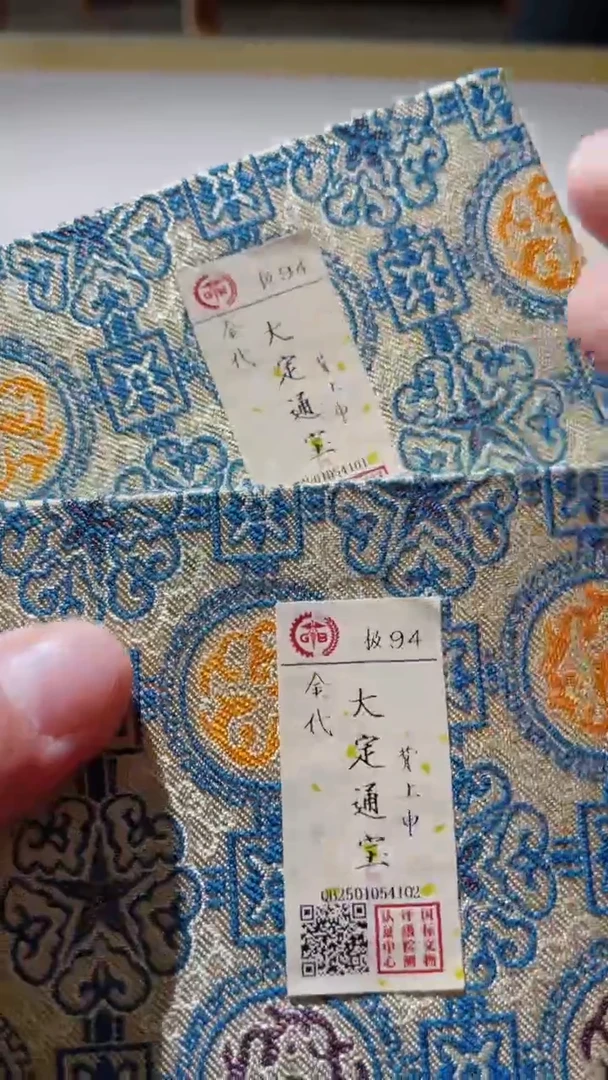 GB 极94
金代
大定通宝
背上申
GB 极94
金代
大定通宝
背上申
QB2501054102
国标文物
评级检测
认证中心